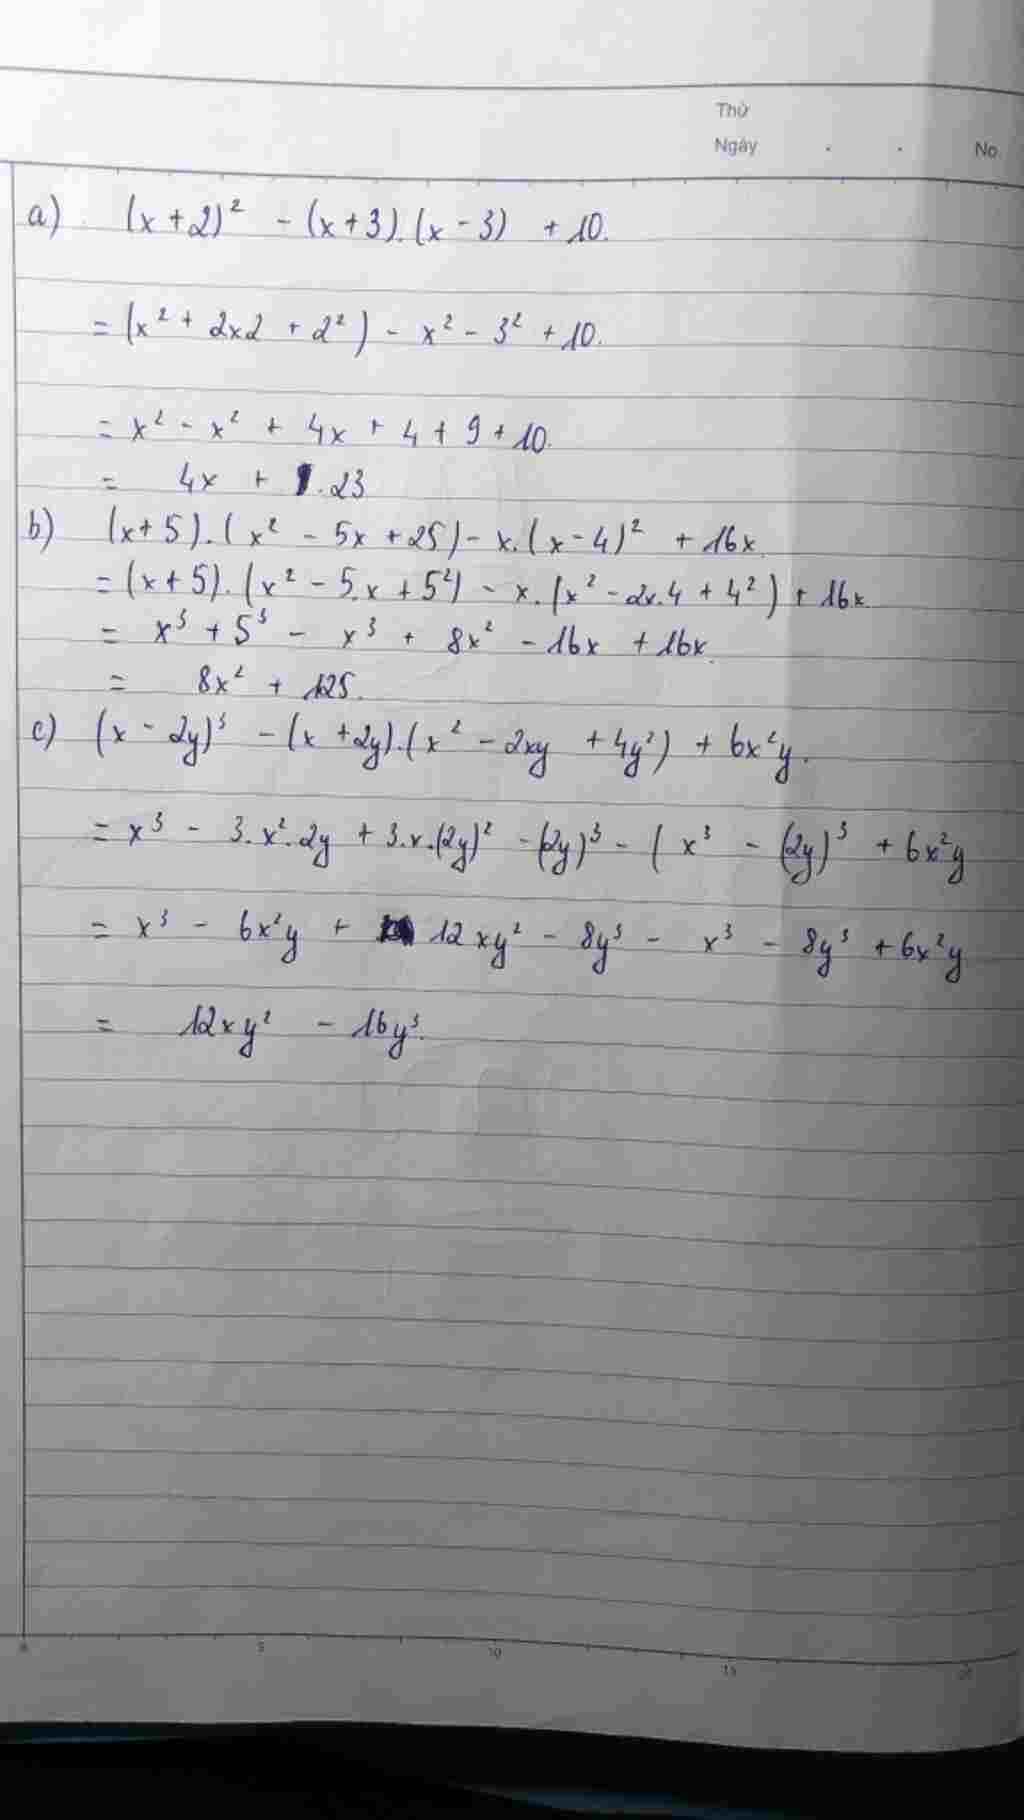 Thứ
Ngày . . No.
a) (x + 2)² - (x + 3).(x - 3) + 10.
= (x² + 2x2 + 2²) - x² - 3² + 10.
= x² - x² + 4x + 4 + 9 + 10.
= 4x + .23
b) (x + 5).(x² - 5x + 25) - x.(x - 4)² + 16x.
= (x + 5).(x² - 5.x + 5²) - x.(x² - 2x.4 + 4²) + 16x.
= x³ + 5³ - x³ + 8x² - 16x + 16x.
= 8x² + 125.
c) (x - 2y)³ - (x + 2y).(x² - 2xy + 4y²) + 6x²y.
= x³ - 3.x².2y + 3.x.(2y)² - (2y)³ - (x³ - (2y)³ + 6x²y
= x³ - 6x²y + 12xy² - 8y³ - x³ - 8y³ + 6x²y
= 12xy² - 16y³.
5 10 15 20